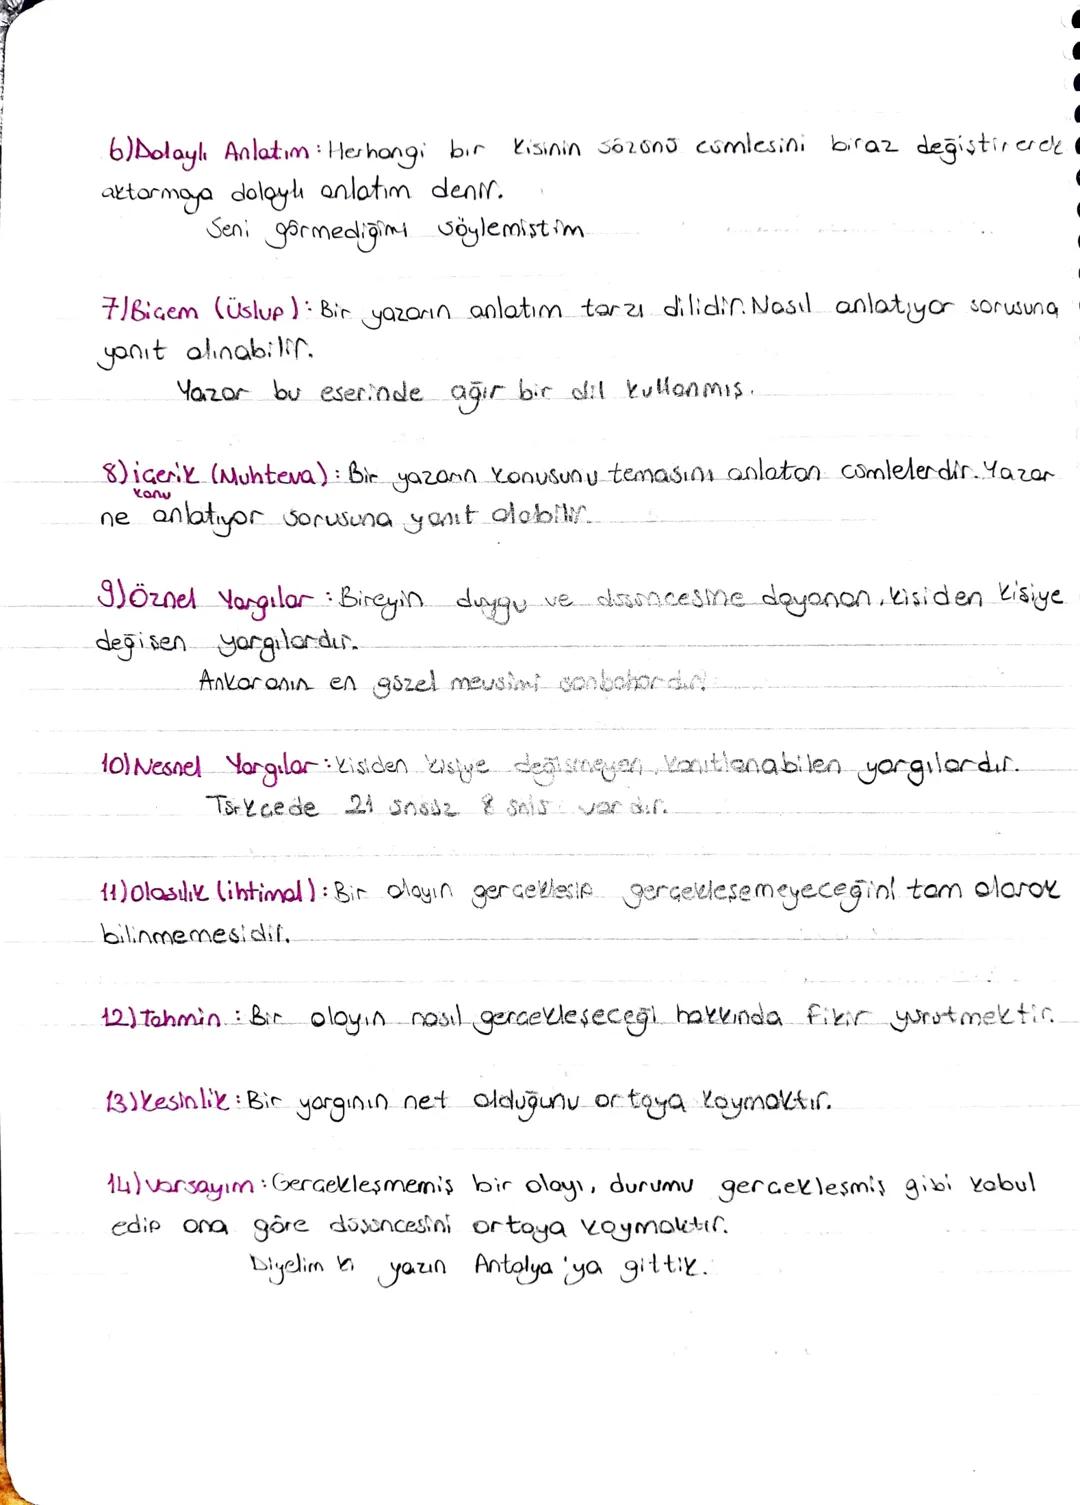 6) Dolaylı Anlatım : Herhangi bir kişinin sözünü cümlesini biraz değiştirerek
aktarmaya dolaylı anlatım denir.
Seni görmediğimi söylemiştim
7) Biçem (Üslup) : Bir yazarın anlatım tarzı dilidir. Nasıl anlatıyor sorusuna
yanıt alınabilir.
Yazar bu eserinde ağır bir dil kullanmış.
8) içerik (Muhteva) : Bir yazarın konusunu temasını anlatan cümlelerdir. Yazar
konu
ne anlatıyor sorusuna yanıt alabilir.
9) Öznel Yargılar : Bireyin duygu ve düşüncesine dayanan, kişiden kişiye
değişen yargılardır.
Ankaranın en güzel mevsimi sonbahardır!
10) Nesnel Yargılar : kişiden kişiye değişmeyen, kanıtlanabilen yargılardır.
Türkçede 21 ünsüz 8 ünlü vardır.
11) Olasılık (ihtimal) : Bir olayın gerçekleşip gerçekleşemeyeceğini tam olarak
bilinmemesidir.
12) Tahmin : Bir olayın nasıl gerçekleşeceği hakkında fikir yürütmektir.
13) kesinlik : Bir yargının net olduğunu ortaya koymaktır.
14) varsayım : Gerçekleşmemiş bir olayı, durumu gerçekleşmiş gibi kabul
edip ona göre düşüncesini ortaya koymaktır.
Diyelim ki yazın Antalya'ya gittik.